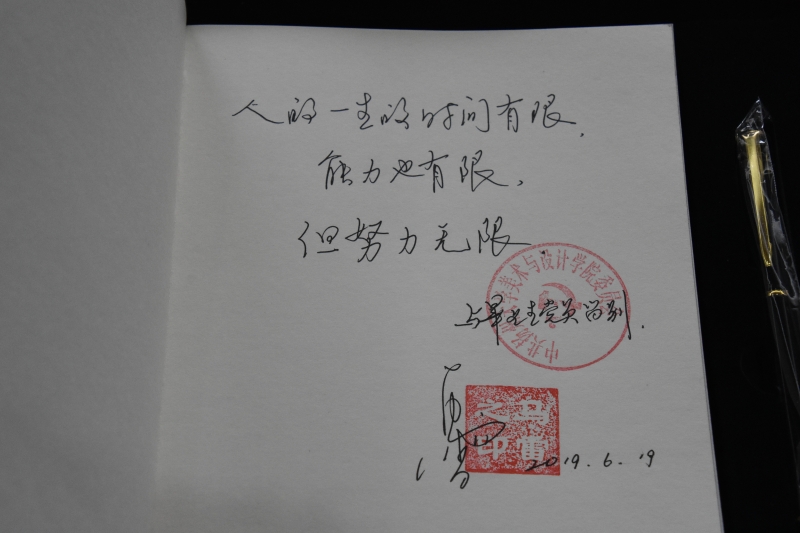 人的一生的时间有限,
能力也有限,
但努力无限
中共扬州大学美术与设计学院委员会
与毕业生党员留别.
之印
2019.6.19